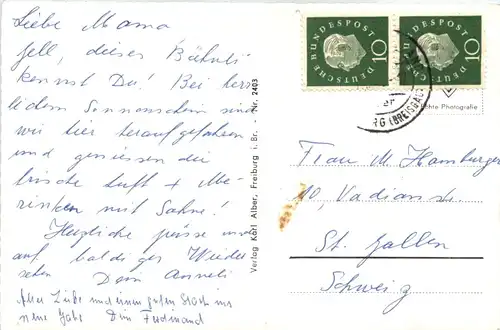 Liebe Mama
gell, dieses Bähnli
kennst Du! Bei herr-
lichem Sonnenschein sind
wir hier heraufgefahren
und geniessen die
frische Luft + Me-
rinken mit Sahne!
Herzliche Grüsse und
auf baldiges Wieder-
sehen Dein Anneli
Alles Liebe und einen guten Start ins
neue Jahr Dein Ferdinand
Verlag Karl Alber, Freiburg i. Br. - Nr. 2403
DEUTSCHE BUNDESPOST 10
DEUTSCHE BUNDESPOST 10
RG (BREISGAU)
Echte Photografie
Frau M. Hamburger
10, Vadianstr.
St. Gallen
Schweiz